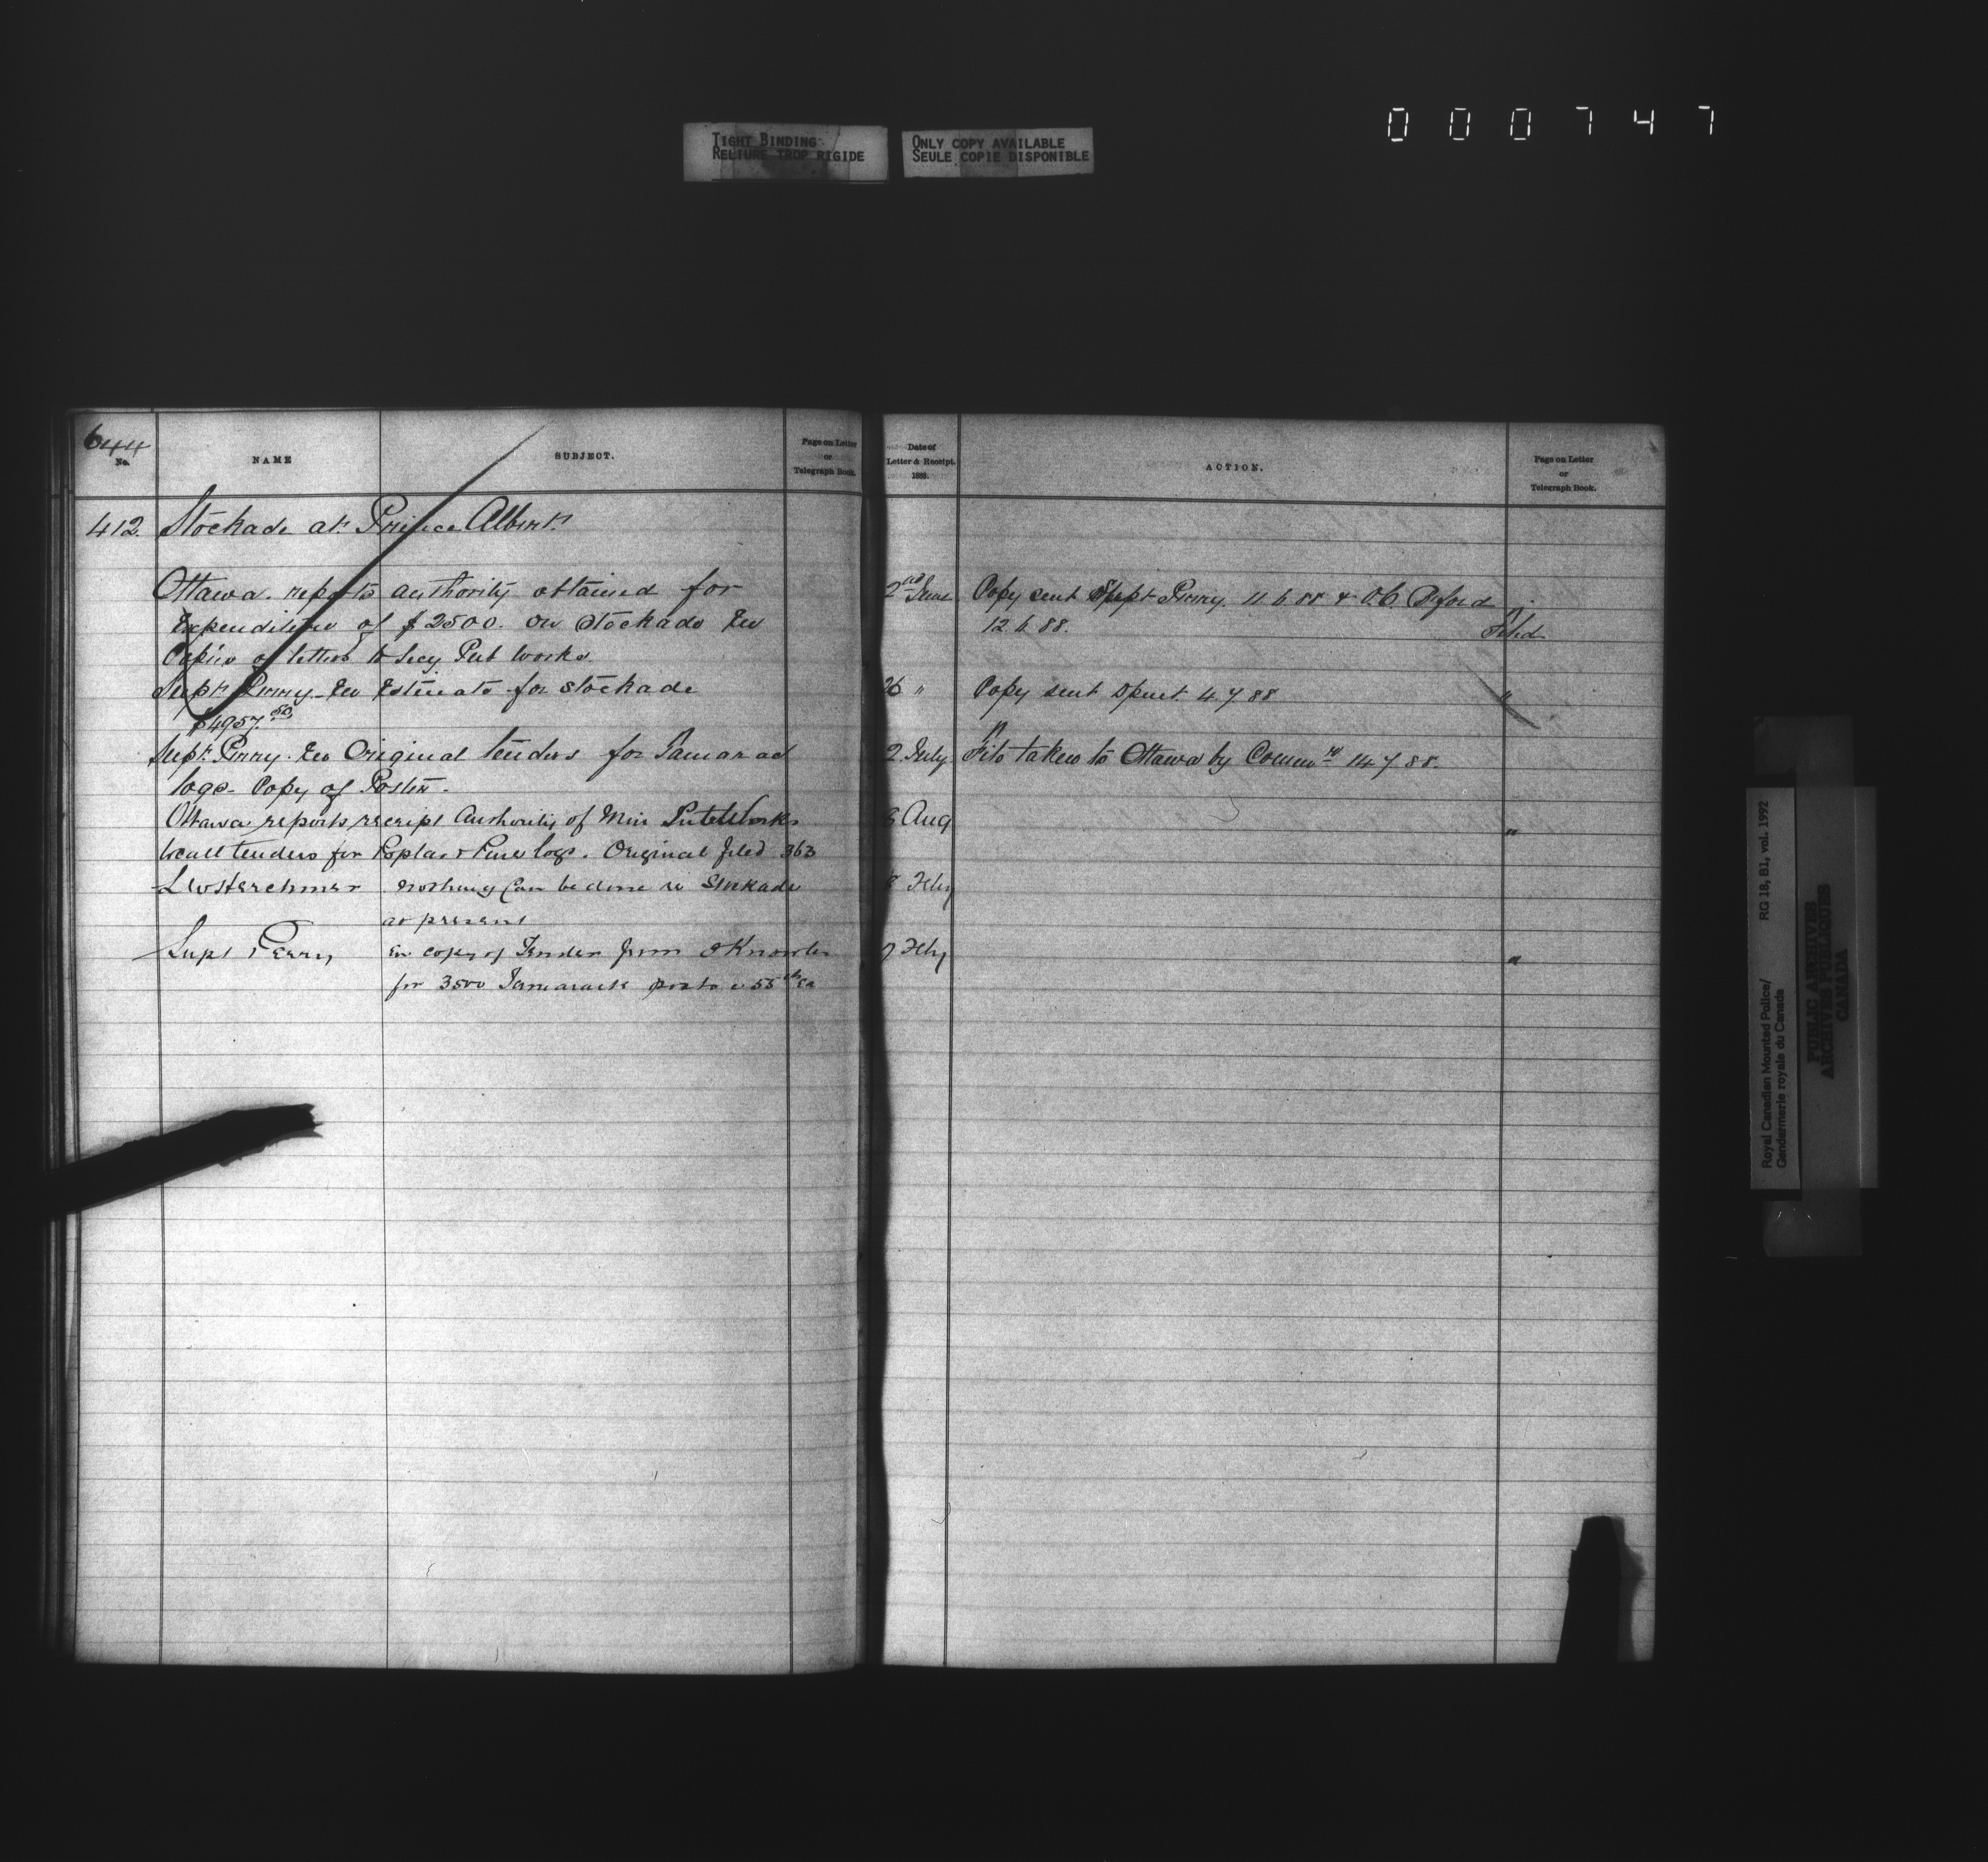 000747
TIGHT BINDING
RELIURE TROP RIGIDE
ONLY COPY AVAILABLE
SEULE COPIE DISPONIBLE
644
No.
NAME
SUBJECT.
Page on Letter
or
Telegraph Book.
Date of
Letter & Receipt.
188
ACTION.
Page on Letter
or
Telegraph Book.
412. Stockade at Prince Albert
Ottawa. reports authority obtained for
2nd June Copy sent Supt Perry. 11.6.88 & O.C. B'ford
Expenditure of $2500. on Stockade Enc
12.6.88. Filed
Copies of letters to Secy Pub Works
Supt Perry. Enc Estimate for Stockade
26 " Copy sent 4.7.88 "
$4957.50
Supt Perry. Enc Original tenders for Tamarac
2 July File taken to Ottawa by Commr 14.7.88.
logs. Copy of Poster.
Ottawa reports receipt Authority of Min Public Works
8 Aug "
to call tenders for Poplar & Pine logs. Original filed 363
L W Herchmer nothing can be done re Stockade
8 Feby
at present
Supt Perry Enc copy of Tender from Knowles
9 Feby "
for 3500 Tamarack posts @ 55cts ea
Royal Canadian Mounted Police/
Gendarmerie royale du Canada
RG 18, B1, vol. 1992
PUBLIC ARCHIVES
ARCHIVES PUBLIQUES
CANADA